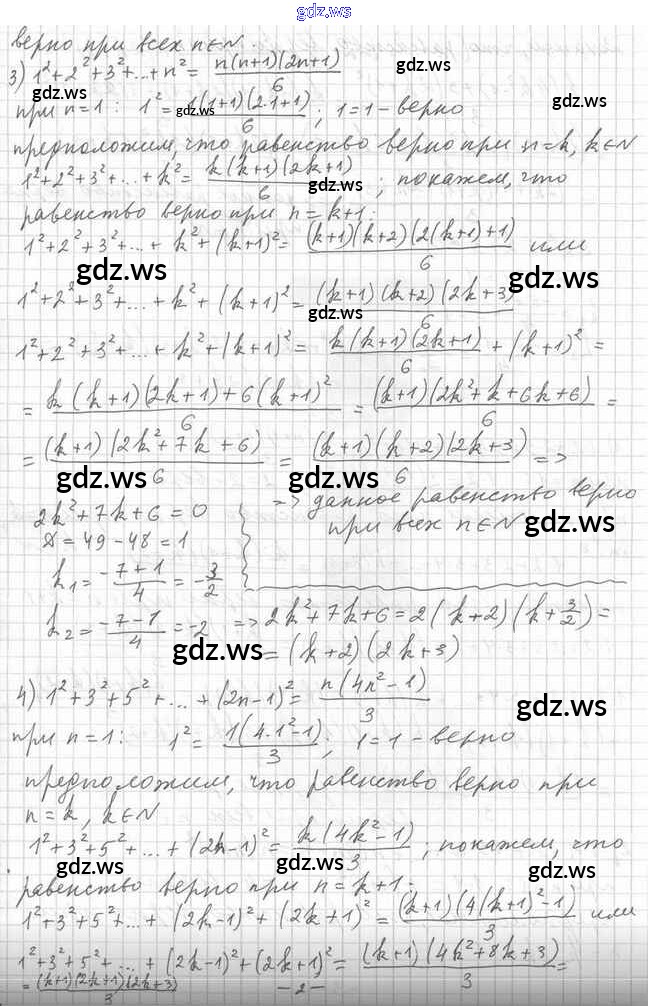 gdz.ws
верно при всех n∈N.
3) 1²+2²+3²+...+n² = n(n+1)(2n+1)/6
gdz.ws
gdz.ws
при n=1: 1² = 1(1+1)(2·1+1)/6; 1=1 - верно
gdz.ws
gdz.ws
предположим, что равенство верно при n=k, k∈N
1²+2²+3²+...+k² = k(k+1)(2k+1)/6; покажем, что
gdz.ws
равенство верно при n=k+1:
1²+2²+3²+...+k²+(k+1)² = (k+1)(k+2)(2(k+1)+1)/6 или
gdz.ws
gdz.ws
1²+2²+3²+...+k²+(k+1)² = (k+1)(k+2)(2k+3)/6
gdz.ws
1²+2²+3²+...+k²+(k+1)² = k(k+1)(2k+1)/6 + (k+1)² =
= k(k+1)(2k+1)+6(k+1)²/6 = (k+1)(2k²+k+6k+6)/6 =
= (k+1)(2k²+7k+6)/6 = (k+1)(k+2)(2k+3)/6 =>
gdz.ws
gdz.ws
=> данное равенство верно
при всех n∈N
gdz.ws
2k²+7k+6=0
D=49-48=1
k₁ = -7+1/4 = -3/2
k₂ = -7-1/4 = -2 => 2k²+7k+6 = 2(k+2)(k+3/2) =
= (k+2)(2k+3)
gdz.ws
4) 1²+3²+5²+...+(2n-1)² = n(4n²-1)/3
gdz.ws
при n=1: 1² = 1(4·1²-1)/3, 1=1 - верно
предположим, что равенство верно при
n=k, k∈N
1²+3²+5²+...+(2k-1)² = k(4k²-1)/3; покажем, что
gdz.ws
gdz.ws
gdz.ws
равенство верно при n=k+1:
1²+3²+5²+...+(2k-1)²+(2k+1)² = (k+1)(4(k+1)²-1)/3 или
1²+3²+5²+...+(2k-1)²+(2k+1)² = (k+1)(4k²+8k+3)/3 =
= (k+1)(2k+1)(2k+3)/3
-2-
gdz.ws